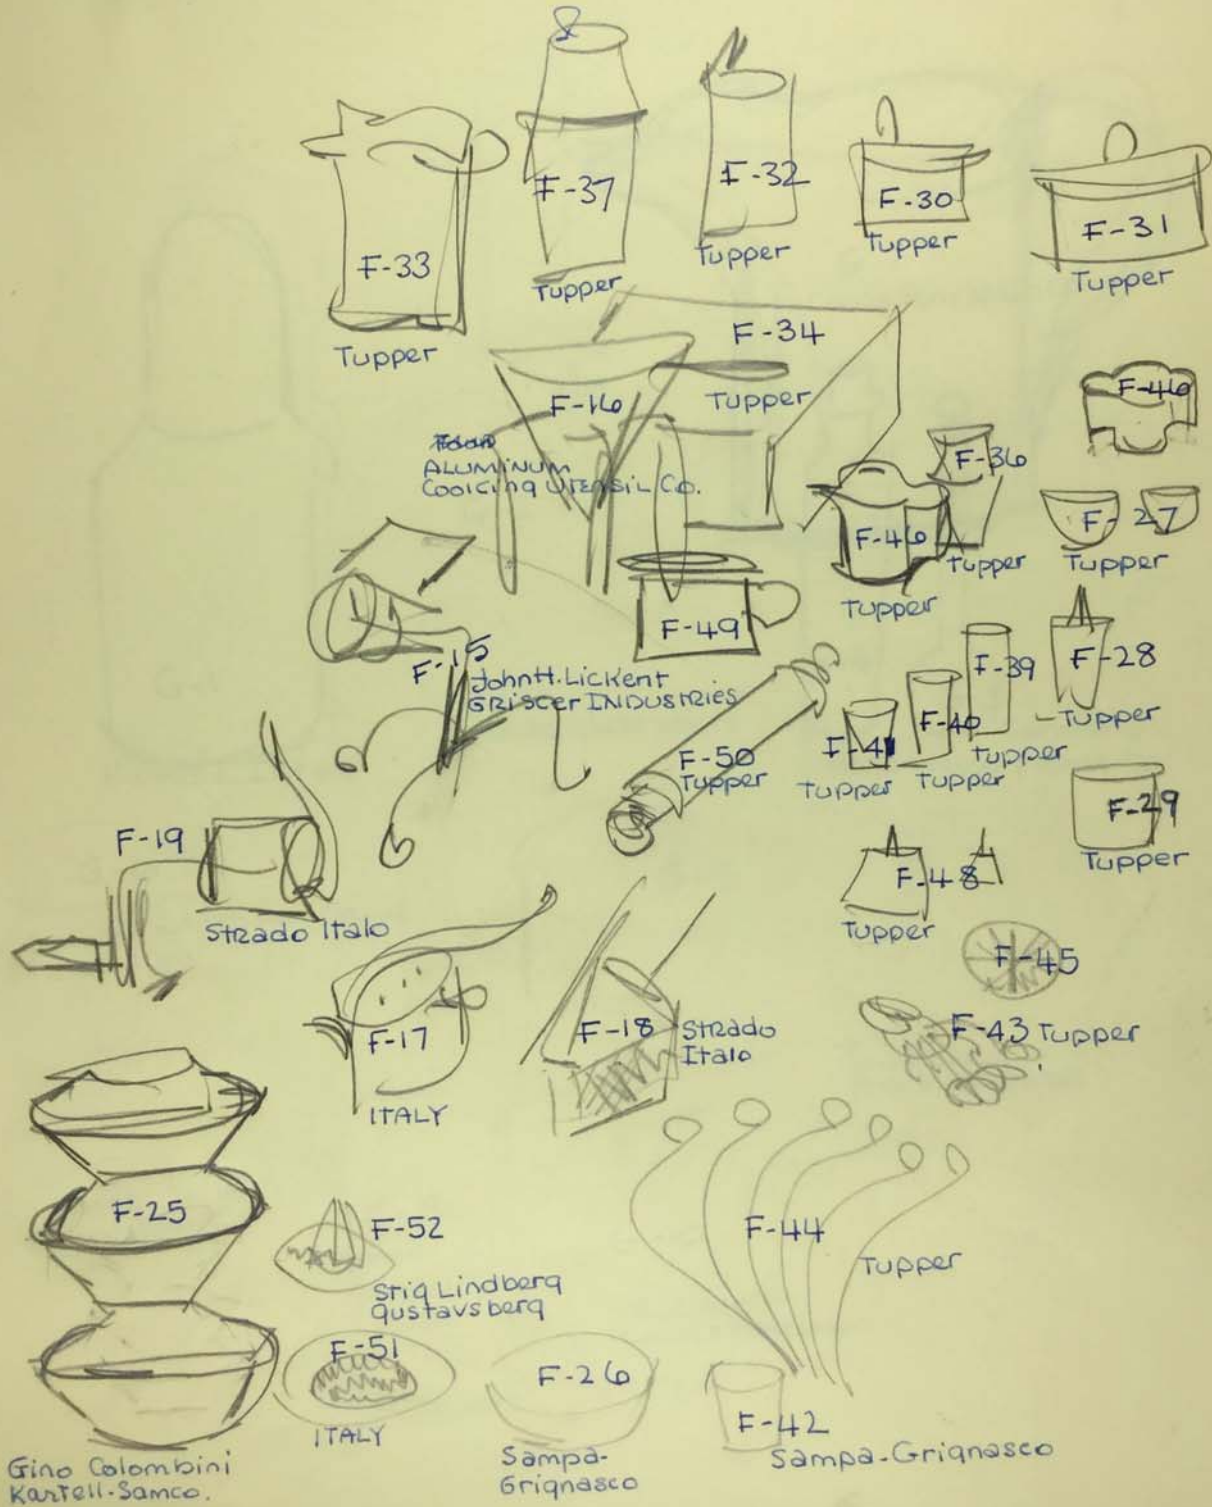 F-33
Tupper
F-37
Tupper
F-32
Tupper
F-30
Tupper
F-31
Tupper
F-34
Tupper
F-16
ALUMINUM
Cooking UTENSIL Co.
F-46
F-36
Tupper
F-27
Tupper
F-46
Tupper
F-49
F-15
John H. Lickent
GRiscer INDUSTRIES
F-50
Tupper
F-41
Tupper
F-40
Tupper
F-39
Tupper
F-28
Tupper
F-29
Tupper
F-19
Strado Italo
F-48
Tupper
F-45
F-43 Tupper
F-17
ITALY
F-18
Strado
Italo
F-25
Gino Colombini
Kartell-Samco.
F-52
Stig Lindberg
Gustavsberg
F-51
ITALY
F-26
Sampa-
Grignasco
F-44
Tupper
F-42
Sampa-Grignasco